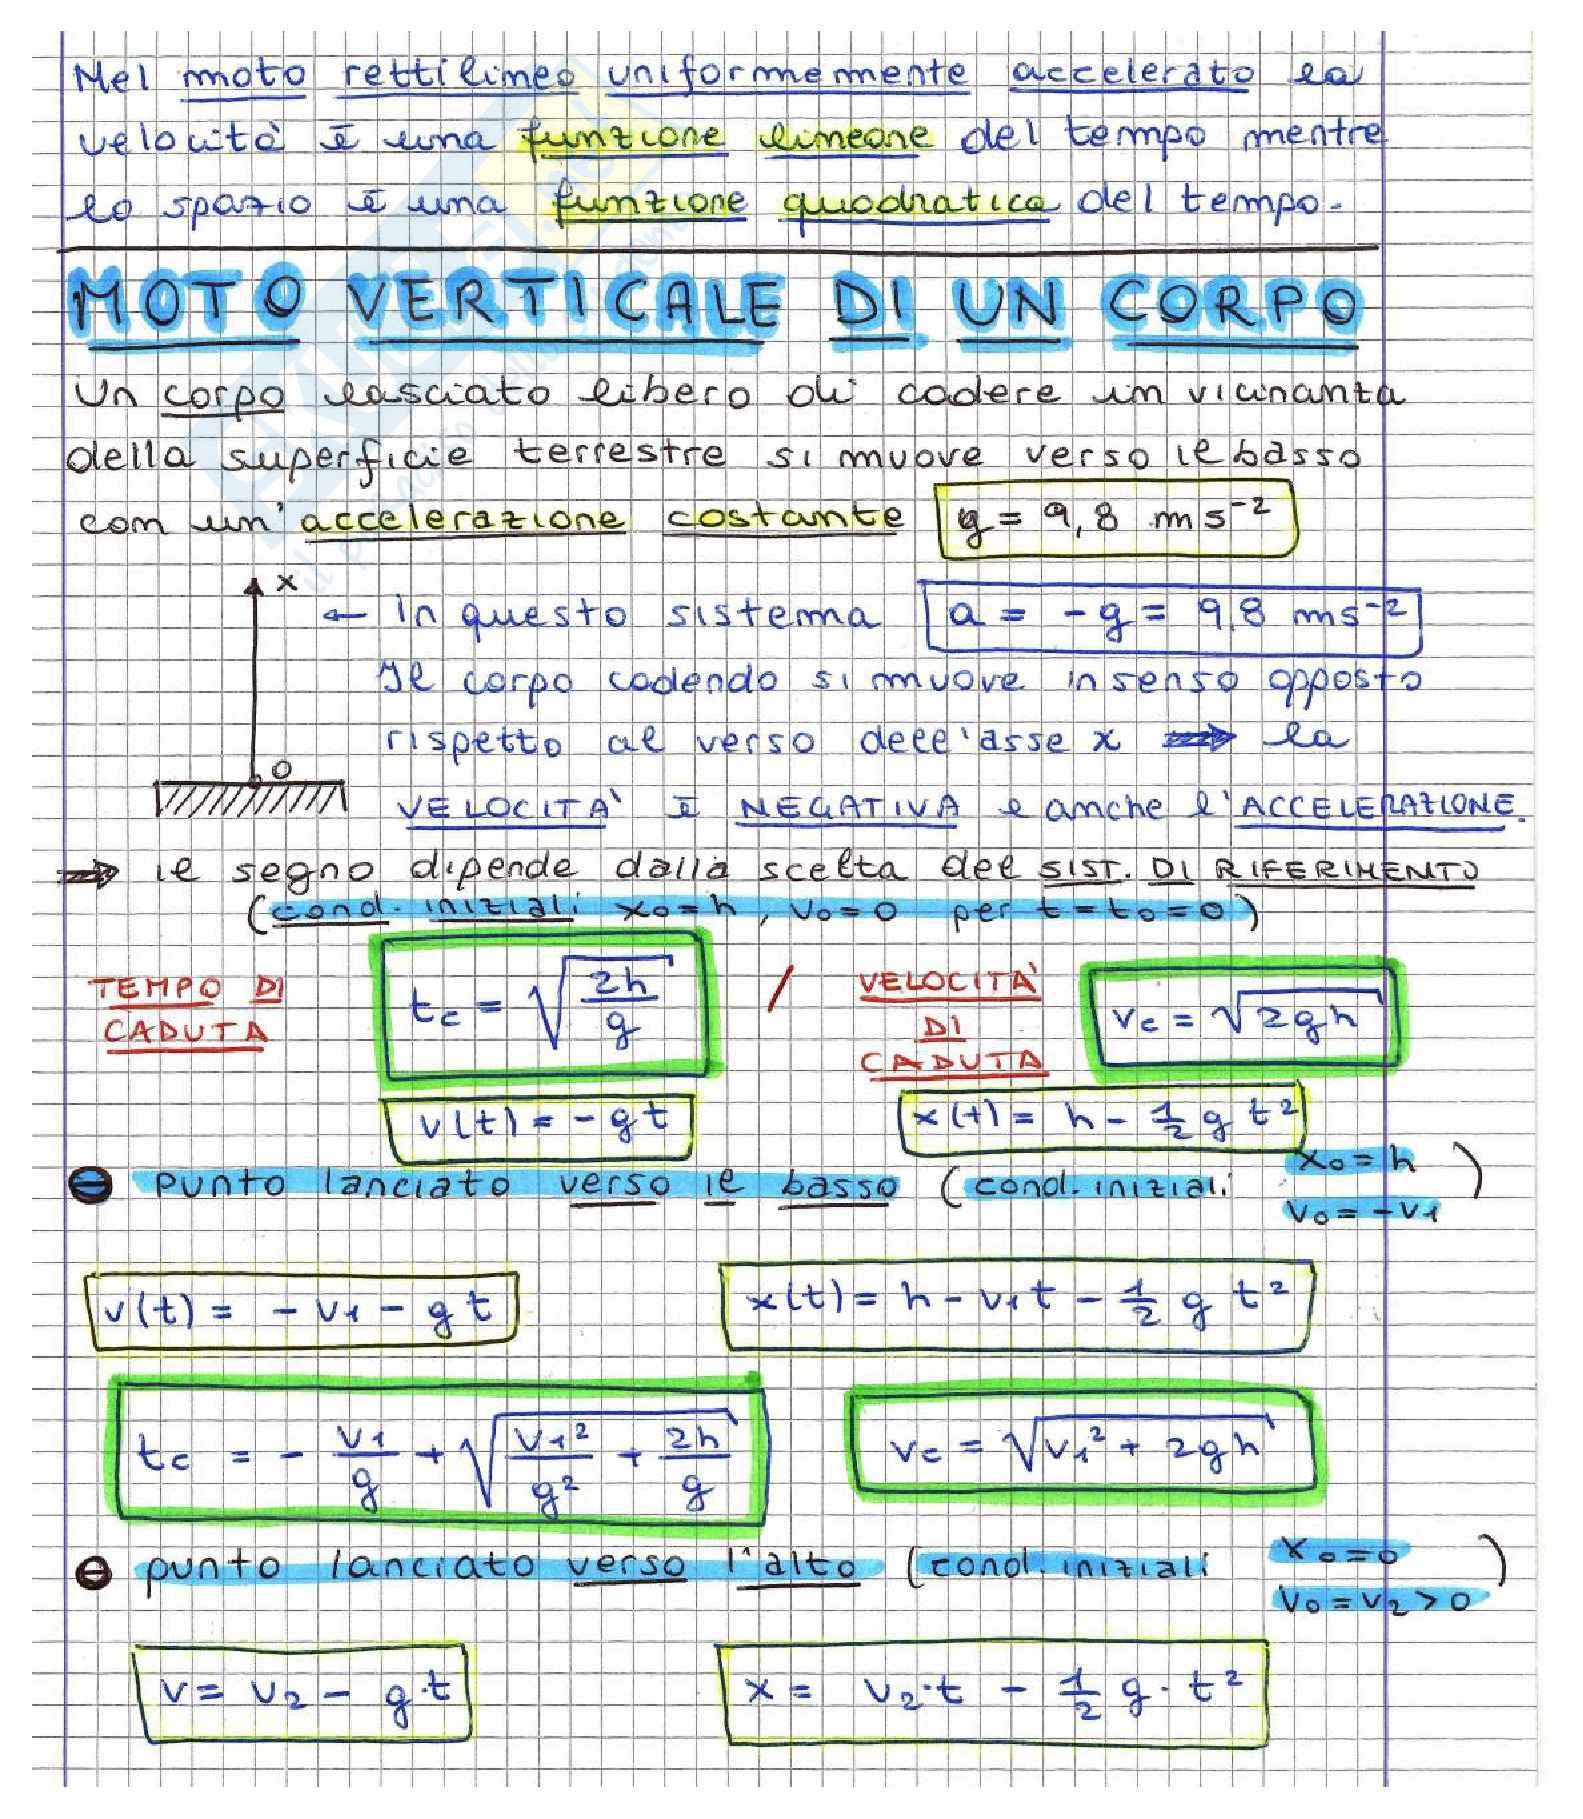 Nel moto rettilineo uniformemente accelerato la
velocità è una funzione lineare del tempo mentre
lo spazio è una funzione quadratica del tempo.
MOTO VERTICALE DI UN CORPO
Un corpo lasciato libero di cadere in vicinanza
della superficie terrestre si muove verso il basso
con un' accelerazione costante g = 9,8 m s⁻²
x
← In questo sistema a = - g = 9,8 ms⁻²
Il corpo cadendo si muove in senso opposto
rispetto al verso dell'asse x ⇒ la
O
VELOCITA' È NEGATIVA e anche l'ACCELERAZIONE.
⇒ il segno dipende dalla scelta del SIST. DI RIFERIMENTO
(cond. iniziali x₀=h, v₀=0 per t=t₀=0)
TEMPO DI CADUTA t_c = √(2h/g) / VELOCITA' DI CADUTA v_c = √(2gh)
v(t) = - g t x(t) = h - 1/2 g t²
⊖ punto lanciato verso il basso (cond. iniziali x₀=h v₀=-v₁)
v(t) = - v₁ - g t x(t) = h - v₁t - 1/2 g t²
t_c = - v₁/g + √(v₁²/g² + 2h/g) v_c = √(v₁² + 2gh)
⊖ punto lanciato verso l'alto (cond. iniziali x₀=0 v₀=v₂>0)
v = v₂ - g·t x = v₂·t - 1/2 g·t²